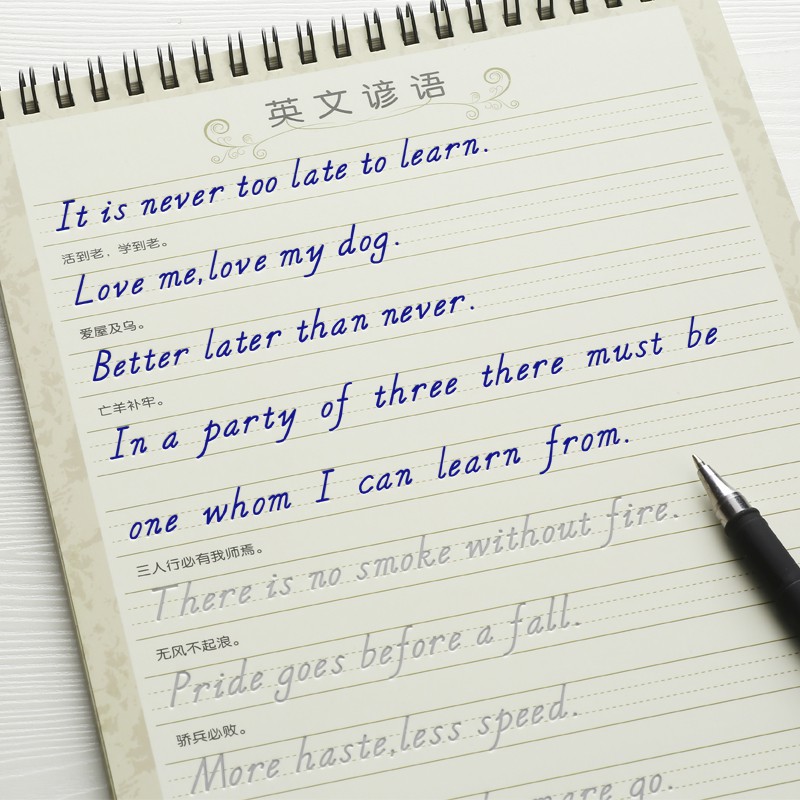 英文谚语
It is never too late to learn.
活到老，学到老。
Love me,love my dog.
爱屋及乌。
Better later than never.
亡羊补牢。
In a party of three there must be
one whom I can learn from.
三人行必有我师焉。
There is no smoke without fire.
无风不起浪。
Pride goes before a fall.
骄兵必败。
More haste,less speed.
more go.